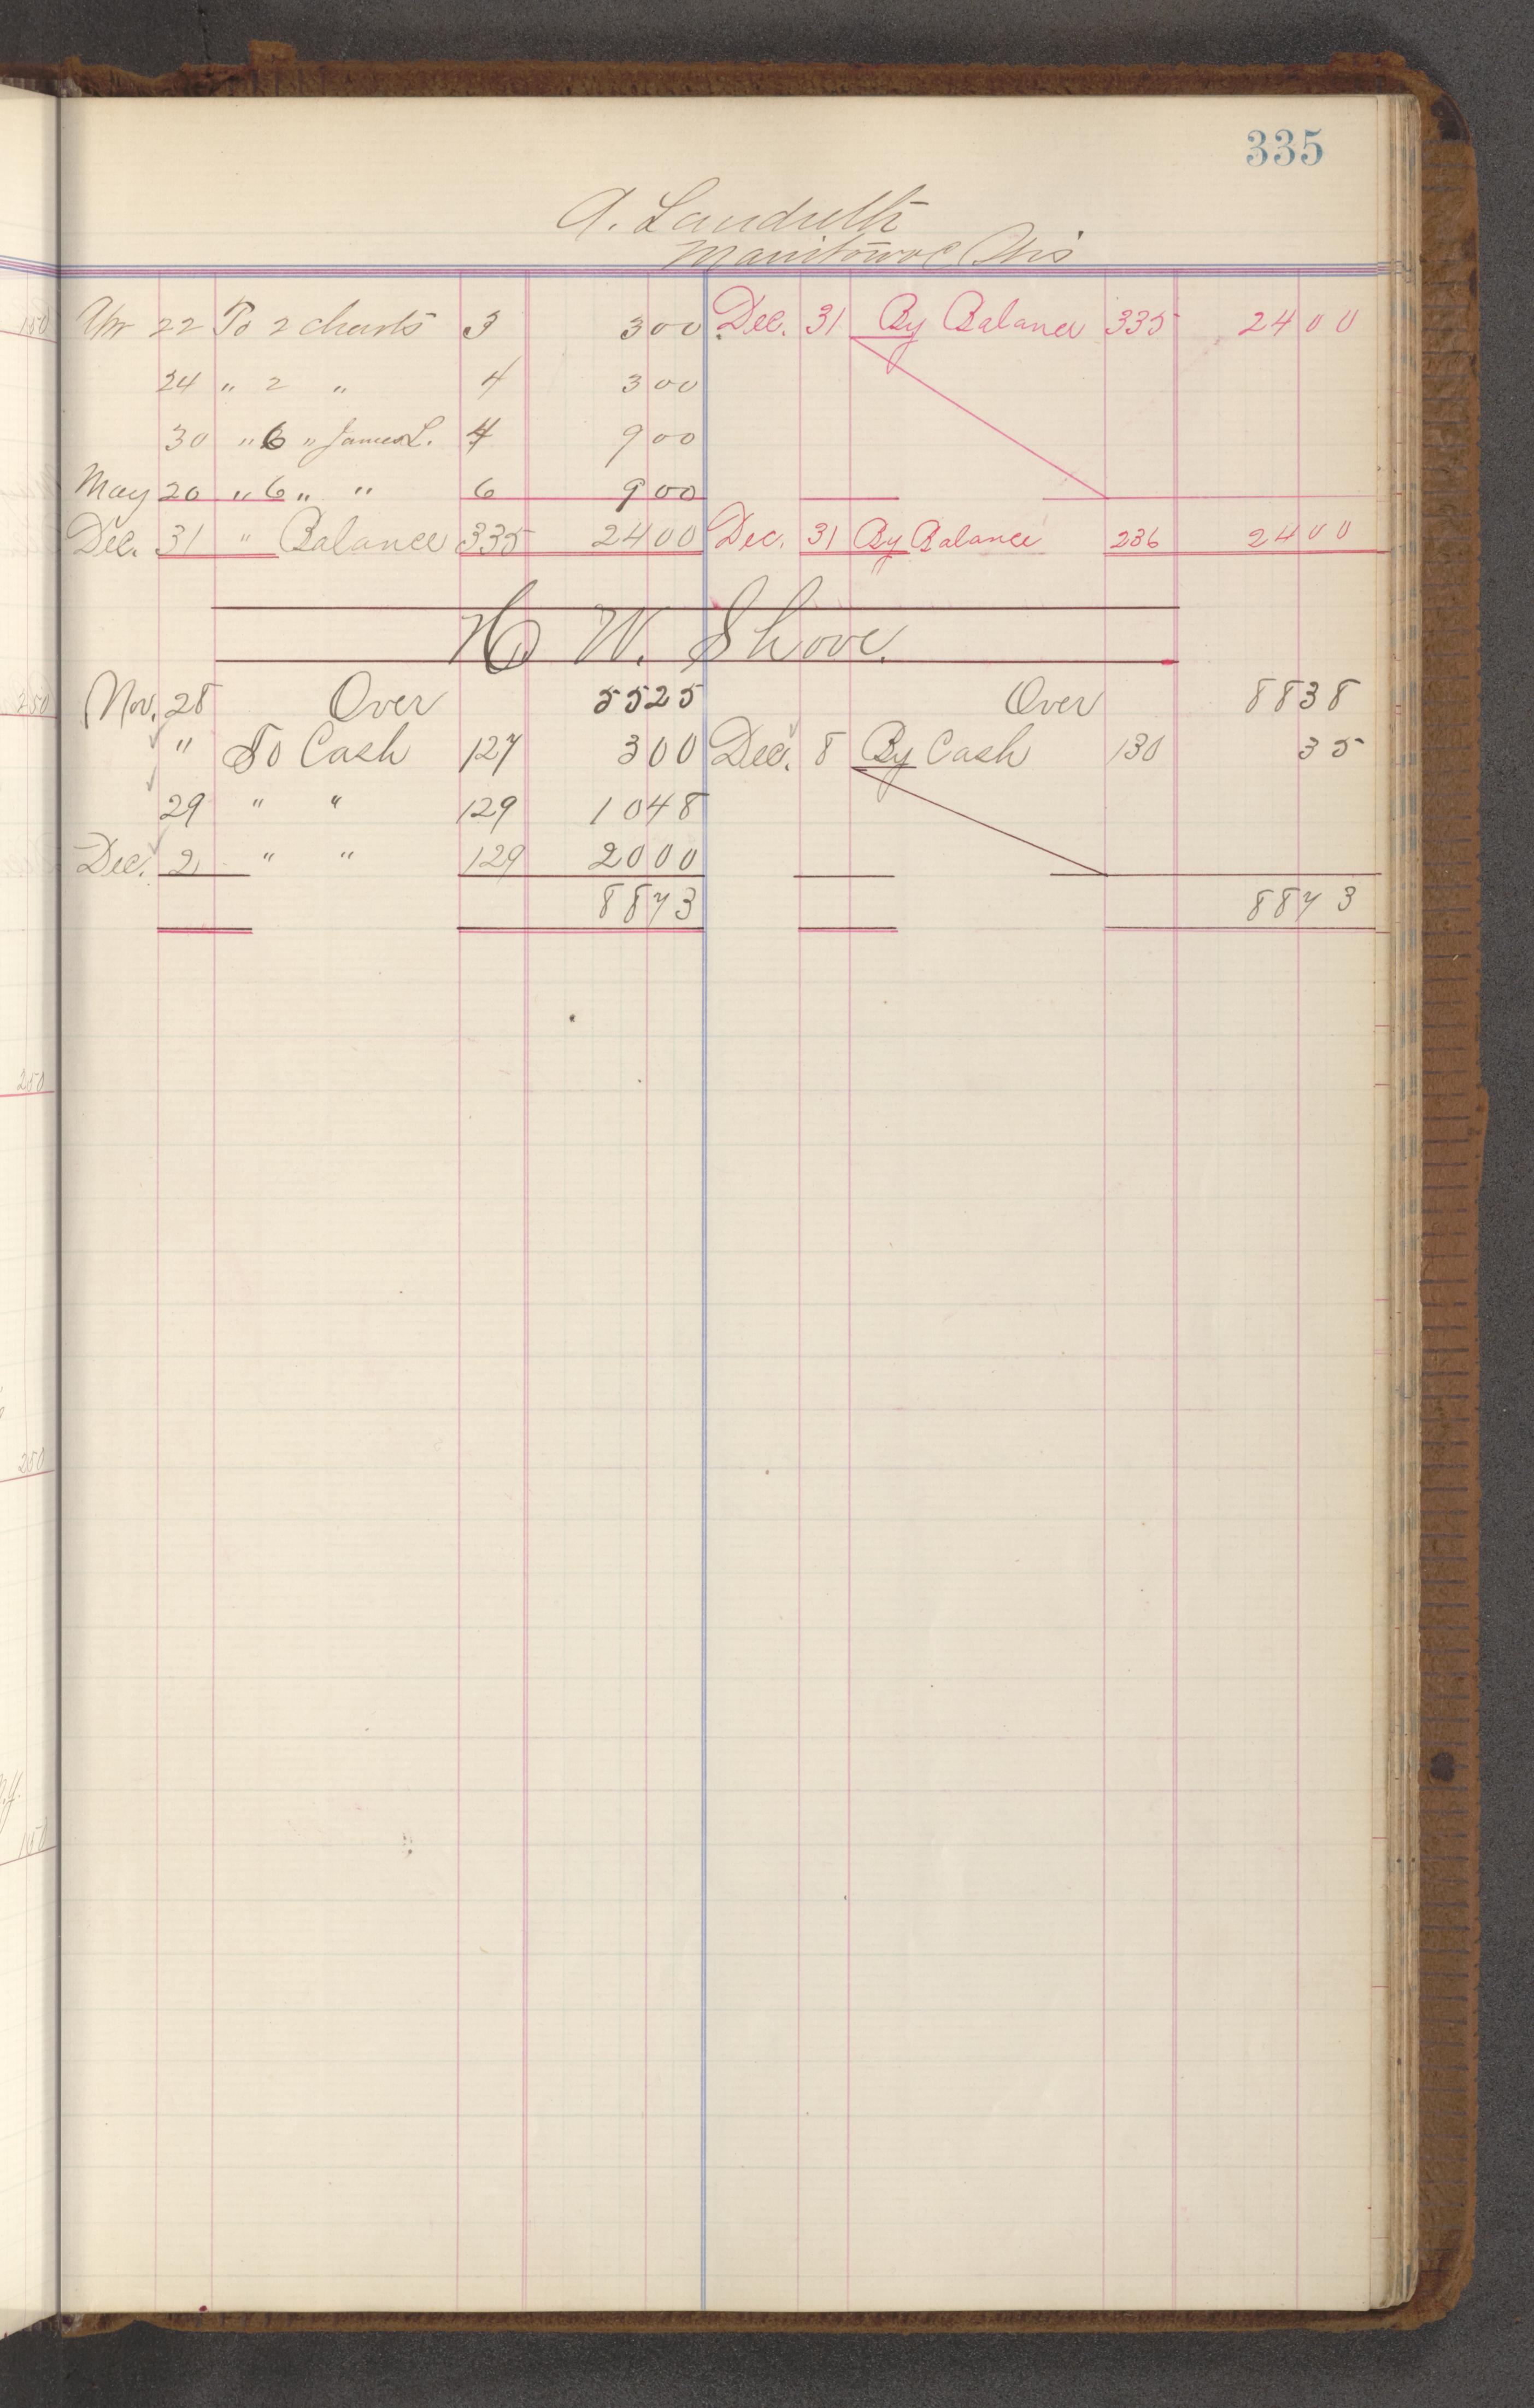 335
A. Landreth
Manitowoc Wis
Apr 22 To 2 charts 3 3 00 Dec. 31 By Balance 335 24 00
24 " 2 " 4 3 00
30 " 6 " James L. 4 9 00
May 20 " 6 " " 6 9 00
Dec. 31 " Balance 335 24 00 Dec. 31 By Balance 236 24 00
H. W. Shove.
Nov. 28 Over 55 25 Over 88 38
" To Cash 127 3 00 Dec. 8 By Cash 130 35
29 " " 129 10 48
Dec. 2 " " 129 20 00
88 73 88 73